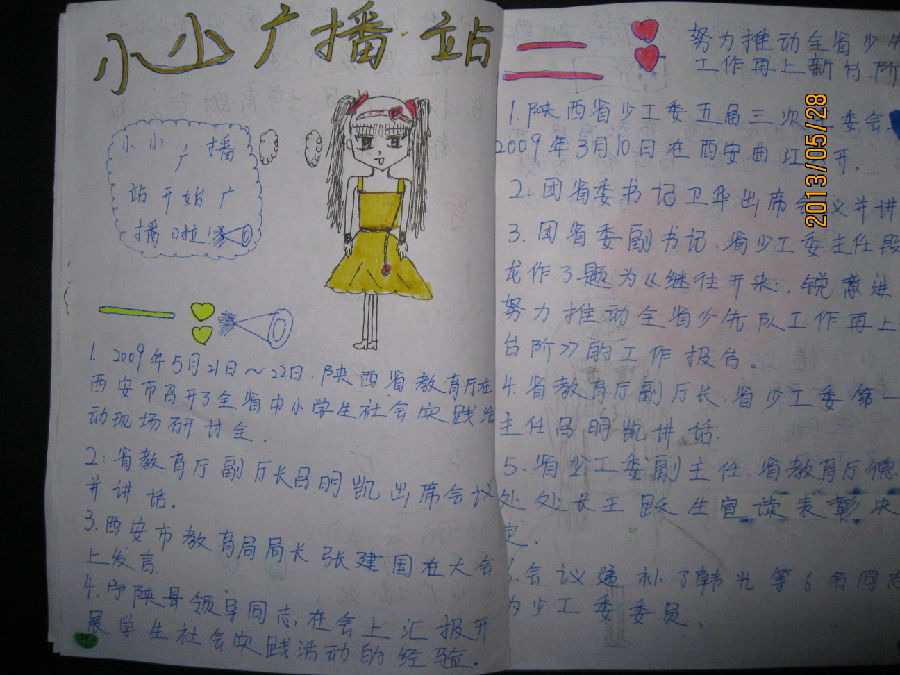 小小广播站
小小广播
站开始广
播啦!
1. 2009年5月21日～22日,陕西省教育厅在
西安市召开了全省中小学生社会实践活
动现场研讨会.
2.省教育厅副厅长吕明凯出席会议
并讲话。
3.西安市教育局局长张建国在大会
上发言.
4.宁陕县领导同志,在会上汇报开
展学生社会实践活动的经验.
努力推动全省少
工作再上新台阶
1.陕西省少工委五届三次委会
2009年3月10日在西安曲江开。
2.团省委书记卫华出席会议并讲
3.团省委副书记,省少工委主任段
龙作了题为《继往开来,锐意进
努力推动全省少先队工作再上
台阶》的工作报告。
4.省教育厅副厅长,省少工委第一
主任吕明凯讲话.
5.省少工委副主任,省教育厅德
处处长王跃生宣读表彰决
定.
6.会议递补了韩光等6名同志
为少工委委员.
2013/05/28